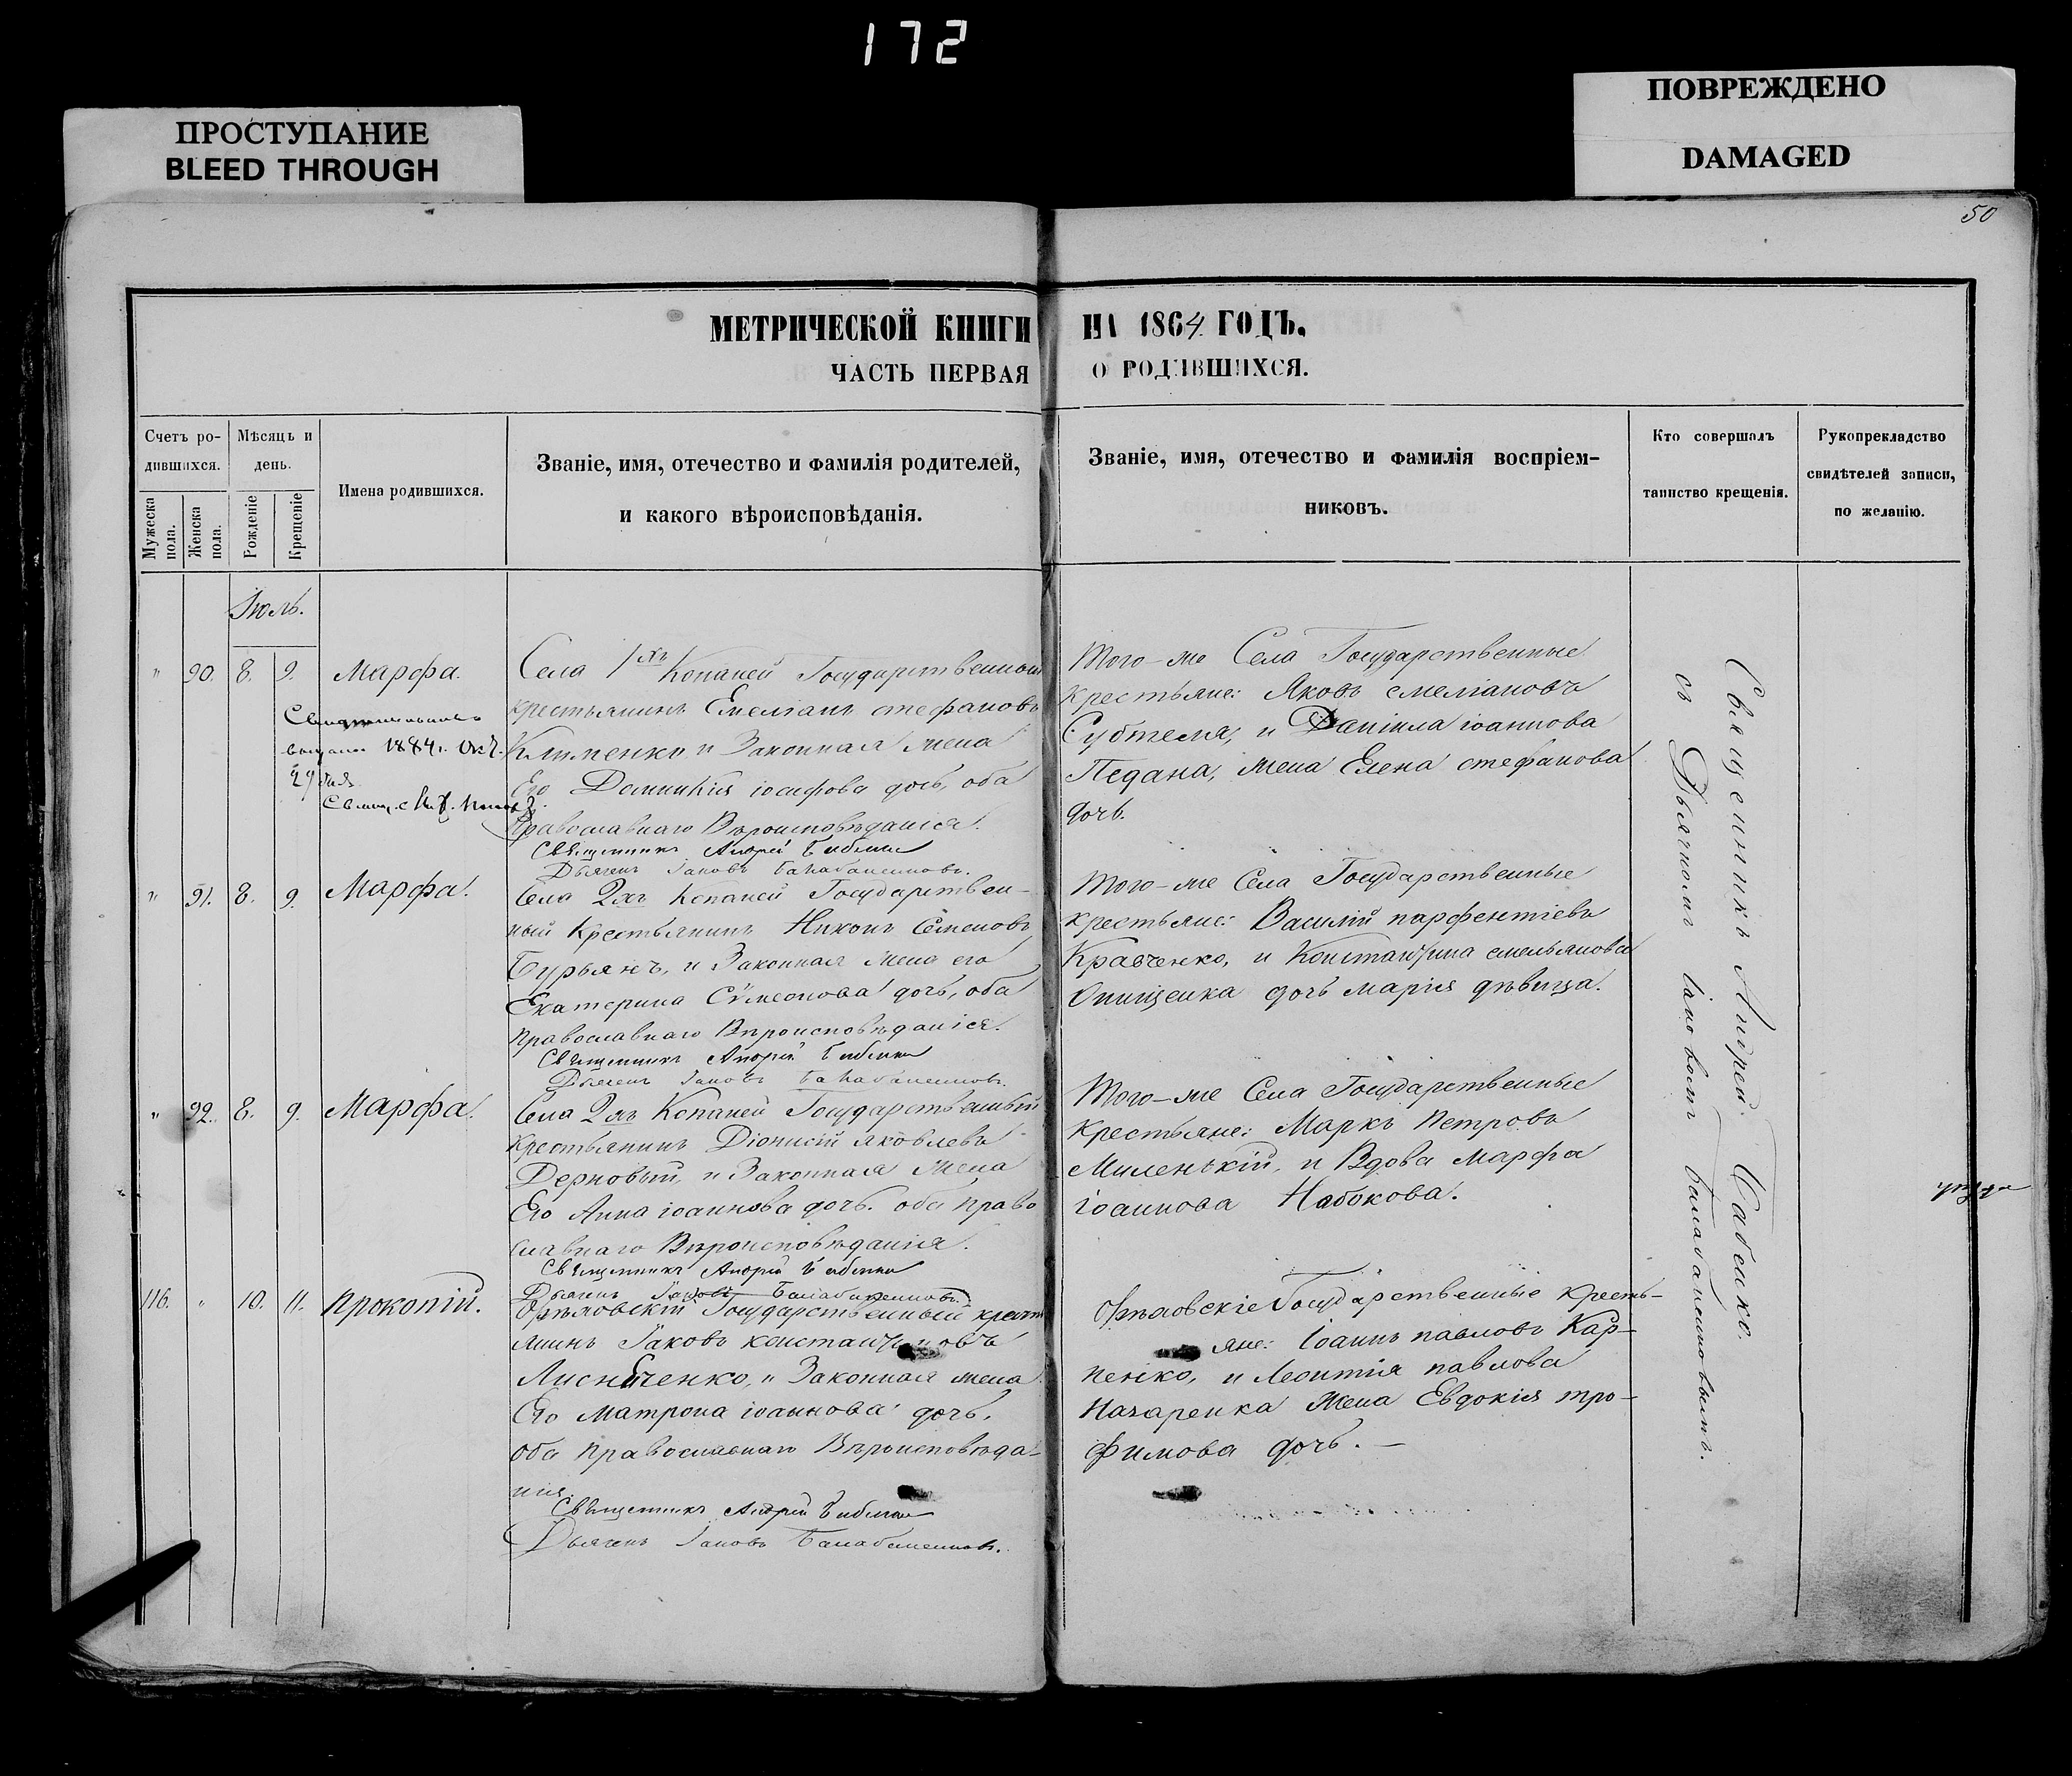 172
ПРОСТУПАНИЕ
BLEED THROUGH
ПОВРЕЖДЕНО
DAMAGED
50
МЕТРИЧЕСКОЙ КНИГИ НА 1864 ГОДЪ,
ЧАСТЬ ПЕРВАЯ О РОДИВШИХСЯ.
Счетъ ро-
дившихся.
Мужеска
пола.
Женска
пола.
Мѣсяцъ и
день.
Рожденіе
Крещеніе
Имена родившихся.
Званіе, имя, отечество и фамилія родителей,
и какого вѣроисповѣданія.
Званіе, имя, отечество и фамилія воспріем-
никовъ.
Кто совершалъ
таинство крещенія.
Рукоприкладство
свидѣтелей записи,
по желанію.
Іюль.
" 90. 8. 9. Марфа.
1884 г. Окт.
29 дня
Села 1хъ Копаней Государственный
крестьянинъ Емеліанъ стефановъ
Клименко, и Законная жена
Его Домникія іосифова дочь, оба
Православнаго Вѣроисповѣданія.
Священникъ Андрей Бабенко
Дьячекъ Іаковъ Балабаненковъ.
Того-же Села Государственные
крестьяне: Яковъ емеліановъ
Субтеля, и Даніила іоаннова
Педана, жена Елена стефанова
дочь.
" 91. 8. 9. Марфа.
Села 2хъ Копаней Государствен-
ный Крестьянинъ Никонъ Семеновъ
Бурьянъ, и Законная жена его
Екатерина Сѵмеонова дочь, оба
православнаго Вѣроисповѣданія.
Священникъ Андрей Бабенко
Дьячекъ Іаковъ Балабаненковъ.
Того-же Села Государственные
крестьяне: Василій парфентіевъ
Кравченко, и Константина емельянова
Онищенка дочь марія дѣвица.
" 92. 8. 9. Марфа.
Села 2хъ Копаней Государственный
Крестьянинъ Діонисій яковлевъ
Дерновый, и Законная жена
Его Анна іоаннова дочь. оба право
славнаго Вѣроисповѣданія.
Священникъ Андрей Бабенко
Дьячекъ Іаковъ Балабаненковъ.
Того-же Села Государственные
Крестьяне: Маркъ Петровъ
Миленькій, и Вдова Марфа
іоаннова Набокова.
116. " 10. 11. Прокопій.
Орѣловскій Государственный крестья
нинъ Іаковъ константиновъ
Лисниченко, и Законная жена
Его Матрона іоаннова дочь.
оба Православнаго Вѣроисповѣда-
нія.
Священникъ Андрей Бабенко
Дьячекъ Іаковъ Балабаненковъ.
Орѣловскіе Государственные кресть-
яне: Іоаннъ павловъ Кар-
пенко, и Леонтія павлова
Назаренка жена Евдокія тро-
фимова дочь. —
Священникъ Андрей Бабенко.
съ Дьячкомъ Іаковомъ Балабаненковымъ.